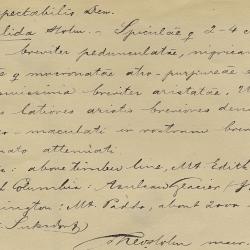 spectabilis Dew.
lida Holm. – Spiculæ ♀ 2–4 c
breviter pedunculatæ, nigrican
♀ mucronatæ atro-purpureæ e
issima breviter aristatæ,
latiores aristis breviores den
maculati in rostrum brev
ato attenuati
above timber line, Mt. Edith
Columbia: Asulkan Glacier
ington: Mt. Paddo, about 2000
Suksdorf
Theo Holm